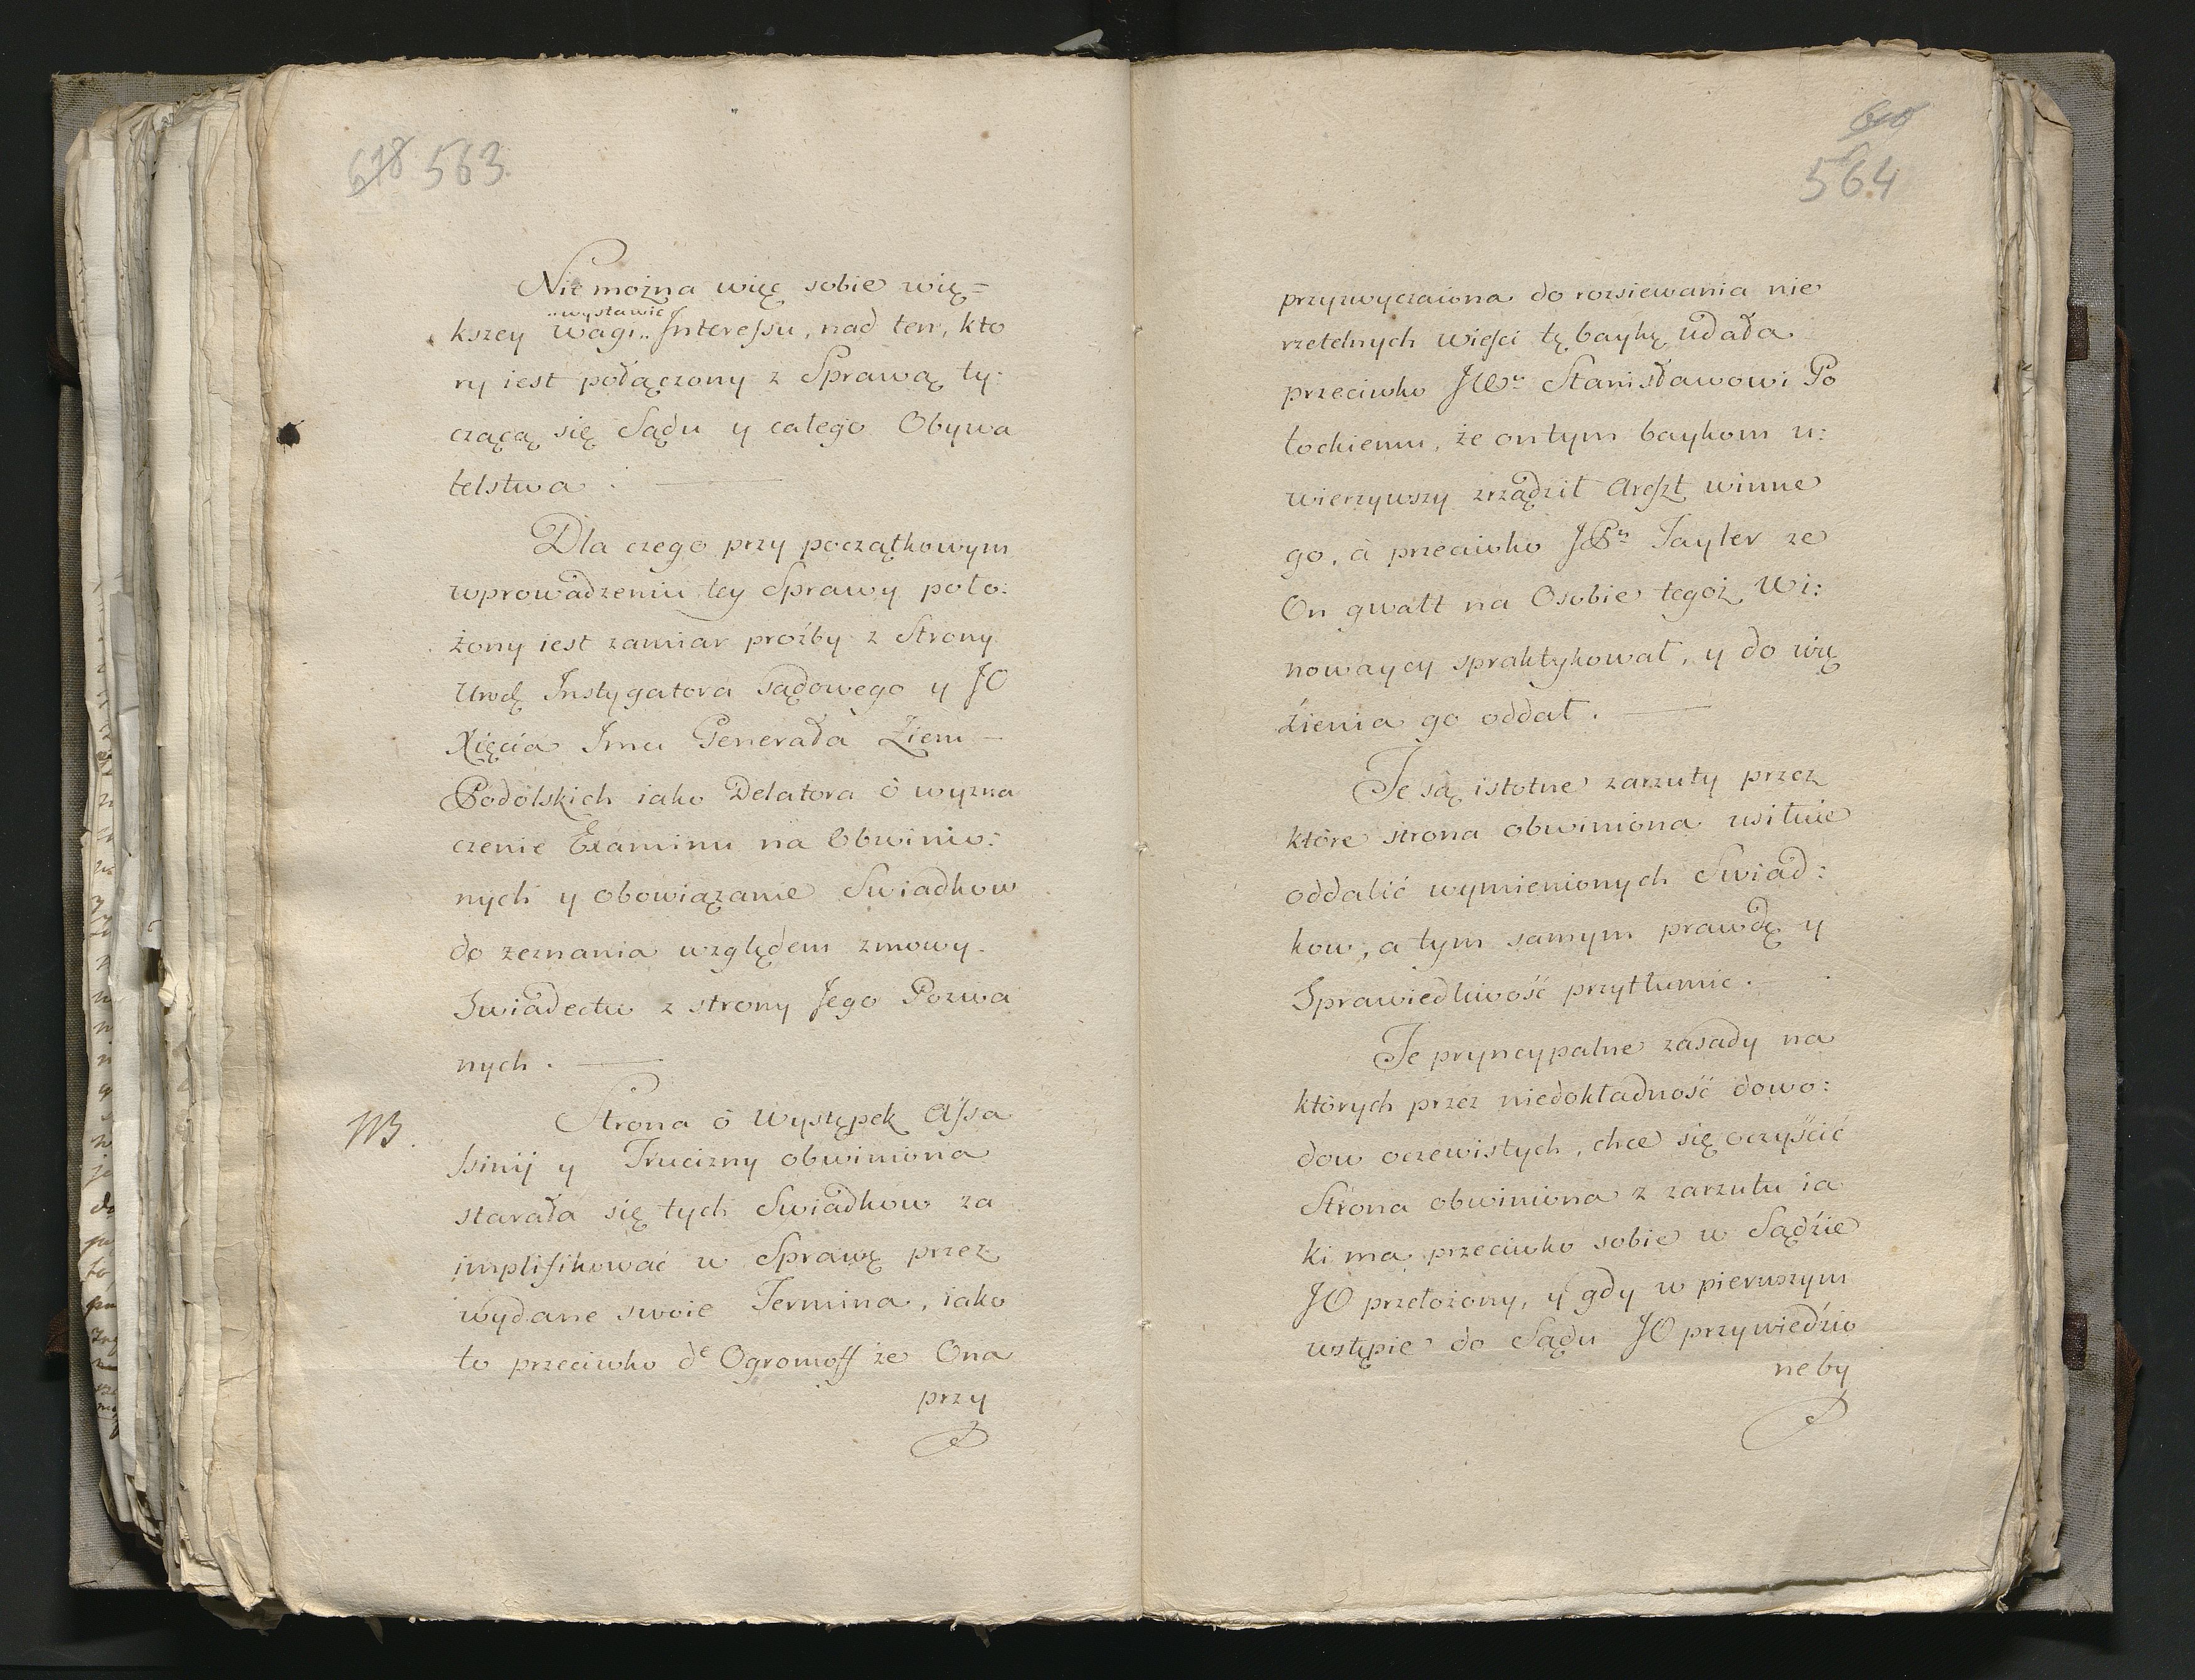 618 563.
Nie można więc sobie wię=
„wystawić
kszey wagi „ Interessu, nad ten, kto
ry iest połączony z Sprawą ty:
czącą się Sądu y całego Obywa
telstwa.
Dla czego przy początkowym
wprowadzeniu tey Sprawy poło:
żony iest zamiar proźby z Strony
Urodz Instygatora sądowego y JO
Xięcia Jmci Generała Ziem
Podolskich iako Delatora ò wyzna
czenie Examinu na Obwinio:
nych y obowiązanie Swiadkow
do zeznania względem zmowy
Swiadectw z strony Jego Pozwa
nych.
NB. Strona ò Występek Assa
ssinij y Trucizny obwiniona
starała się tych Swiadkow za
implifikować w Sprawę przez
wydane swoie Termina, iako
to przeciwko de Ogromoff że Ona
przy
564
przyzwyczaiona do rozsiewania nie
rzetelnych wieści tę baykę udała
przeciwko JWu Stanisławowi Po
tockiemu, że on tym baykom u:
wierzywszy zrządził Areszt winne
go, à przeciwko JPu Tayler ze
On gwałt na Osobie tegoż Wi:
nowaycy spraktykował, y do wię
źienia go oddał.
Te są istotne zarzuty przez
ktòre strona obwiniona usiłuie
oddalić wymienionych Swiad:
kow, a tym samym prawdę y
Sprawiedliwość przytłumić.
Te pryncypalne zasady na
ktòrych przez niedokładność dowo:
dow oczewistych, chce się oczyścić
Strona obwiniona z zarzutu ia
ki ma przeciwko sobie w Sądźie
JO przełożony, y gdy w pierwszym
wstępie do Sądu JO przywiedźio
ne by